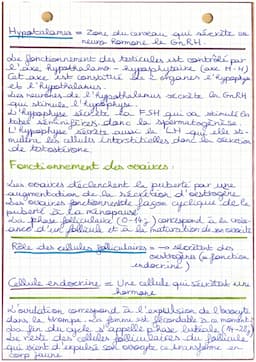 Hypothalamus = zone du cerveau qui sécrète une
neuro hormone le GnRH.
Le fonctionnement des testicules est contrôlé par
l'axe hypothalamo-hypophysaire (axe H-H)
Cet axe est constitué de 2 organes l'hypophyse
et l'hypothalamus.
Les neurones de l'hypothalamus sécrète la GnRH
qui stimule l'hypophyse.
L'hypophyse sécrète la FSH qui va stimuler les
tubes séminifères dans la spermatogénèse.
L'hypophyse sécrète aussi la LH qui elle sti-
mulera les cellules interstitielles dans la sécrétion
de testostérone.
Fonctionnement des ovaires.
Les ovaires déclenchent la puberté par une
augmentation de la sécrétion d'oestrogène
Les ovaires fonctionnent de façon cyclique de la
puberté à la ménopause.
La phase folliculaire (0-14j) correspond à la crois-
sance d'un follicule et à la maturation de son ovocyte
Rôle des cellules folliculaires = → sécrètent des
oestrogènes (= fonction
endocrine)
Cellule endocrine = Une cellule qui sécrètent une
hormone
L'ovulation correspond à l'expulsion de l'ovocyte
dans la trompe. La femme est fécondable à ce moment
La fin du cycle s'appelle phase lutéale (14-28j)
Le reste des cellules folliculaires du follicule
qui vient d'expulsé son ovocyte se transforme en
corp jaune